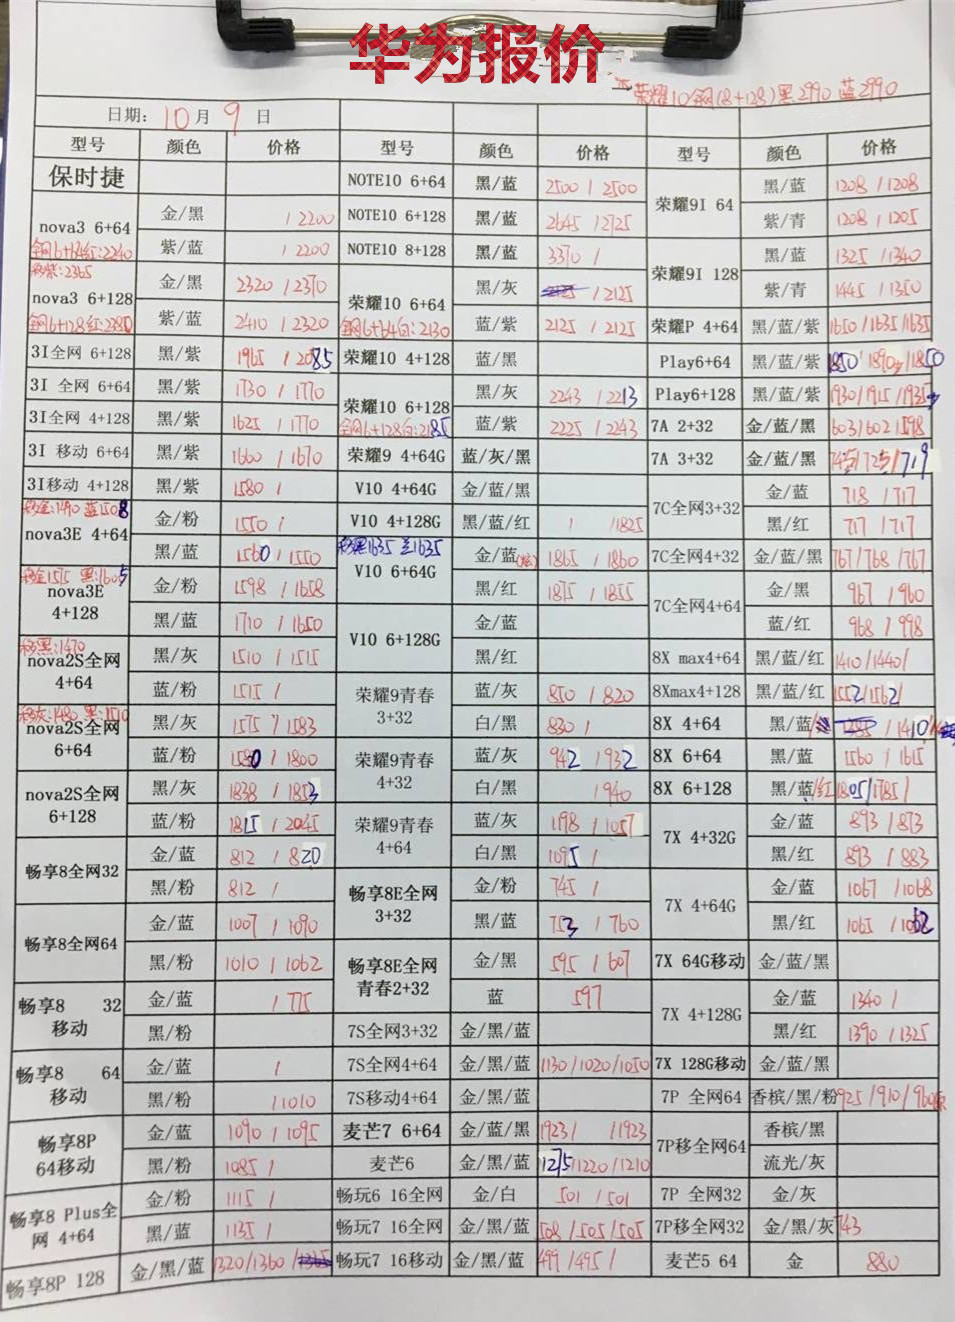 华为报价
荣耀10全网(8+128)黑2990 蓝2990
日期: 10 月 9 日
型号 颜色 价格 型号 颜色 价格 型号 颜色 价格
保时捷
nova3 6+64
全网6+64红:2240
金/黑 / 2200
紫/蓝 / 2200
移紫:2365
nova3 6+128
全网6+128红:2380
金/黑 2320 / 2370
紫/蓝 2410 / 2320
3I全网 6+128 黑/紫 1965 / 2085
3I 全网 6+64 黑/紫 1730 / 1770
3I全网 4+128 黑/紫 1625 / 1770
3I 移动 6+64 黑/紫 1660 / 1670
3I移动 4+128 黑/紫 1580 /
移金:1490 蓝1508
nova3E 4+64
金/粉 1550 /
黑/蓝 1560 / 1550
移金1575 黑:1605
nova3E
4+128
金/粉 1598 / 1658
黑/蓝 1710 / 1650
移黑:1470
nova2S全网
4+64
黑/灰 1510 / 1515
蓝/粉 1515 /
移灰:1480 黑:1510
nova2S全网
6+64
黑/灰 1575 / 1583
蓝/粉 1580 / 1800
nova2S全网
6+128
黑/灰 1838 / 1853
蓝/粉 1815 / 2045
畅享8全网32
金/蓝 812 / 820
黑/粉 812 /
畅享8全网64
金/蓝 1007 / 1090
黑/粉 1010 / 1062
畅享8 32
移动
金/蓝 / 775
黑/粉
畅享8 64
移动
金/蓝 /
黑/粉 / 1010
畅享8P
64移动
金/蓝 1090 / 1095
黑/粉 1085 /
畅享8 Plus全
网 4+64
金/粉 1115 /
黑/蓝 1135 /
畅享8P 128 金/黑/蓝 1320/1360/
NOTE10 6+64 黑/蓝 2500 / 2500
NOTE10 6+128 黑/蓝 2645 / 2725
NOTE10 8+128 黑/蓝 3370 /
荣耀10 6+64
全网6+64白:2130
黑/灰 / 2125
蓝/紫 2125 / 2125
荣耀10 4+128 蓝/黑
荣耀10 6+128
全网6+128白:2185
黑/灰 2243 / 2213
蓝/紫 2225 / 2243
荣耀9 4+64G 蓝/灰/黑
V10 4+64G 金/蓝/黑
V10 4+128G 黑/蓝/红 / /1825
移黑1635 兰1635
V10 6+64G
金/蓝 1865 / 1860
黑/红 1875 / 1855
V10 6+128G
金/蓝
黑/红
荣耀9青春
3+32
蓝/灰 850 / 820
白/黑 830 /
荣耀9青春
4+32
蓝/灰 942 / 932
白/黑 / 940
荣耀9青春
4+64
蓝/灰 1198 / 1057
白/黑 1095 /
畅享8E全网
3+32
金/粉 745 /
黑/蓝 753 / 760
畅享8E全网
青春2+32
金/黑 595 / 607
蓝 597
7S全网3+32 金/黑/蓝
7S全网4+64 金/黑/蓝 1130/1020/1050
7S移动4+64 金/黑/蓝
麦芒7 6+64 金/蓝/黑 1923/ /1923
麦芒6 金/黑/蓝 1215/1220/1210
畅玩6 16全网 金/白 501 / 501
畅玩7 16全网 金/黑/蓝 508/505/505
畅玩7 16移动 金/黑/蓝 499/495/
荣耀9I 64
黑/蓝 1208 / 1208
紫/青 1208 / 1205
荣耀9I 128
黑/蓝 1325 / 1340
紫/青 1445 / 1350
荣耀P 4+64 黑/蓝/紫 1650/1635/1635
Play6+64 黑/蓝/紫 1850/1890/1850
Play6+128 黑/蓝/紫 1930/1915/1935
7A 2+32 金/蓝/黑 603/602/598
7A 3+32 金/蓝/黑 745/725/719
7C全网3+32
金/蓝 718 / 717
黑/红 717 / 717
7C全网4+32 金/蓝/黑 767/768/767
7C全网4+64
金/黑 967 / 960
蓝/红 968 / 998
8X max4+64 黑/蓝/红 1410/1440/
8Xmax4+128 黑/蓝/红 1552/1562/
8X 4+64 黑/蓝/ / 1410/
8X 6+64 黑/蓝 1560 / 1615
8X 6+128 黑/蓝/红 1805/1785/
7X 4+32G
金/蓝 893 / 873
黑/红 893 / 883
7X 4+64G
金/蓝 1067 / 1068
黑/红 1065 / 1062
7X 64G移动 金/蓝/黑
7X 4+128G
金/蓝 1340 /
黑/红 1390 / 1325
7X 128G移动 金/蓝/黑
7P 全网64 香槟/黑/粉 925/910/960
7P移全网64
香槟/黑
流光/灰
7P 全网32 金/灰
7P移全网32 金/黑/灰 743
麦芒5 64 金 880